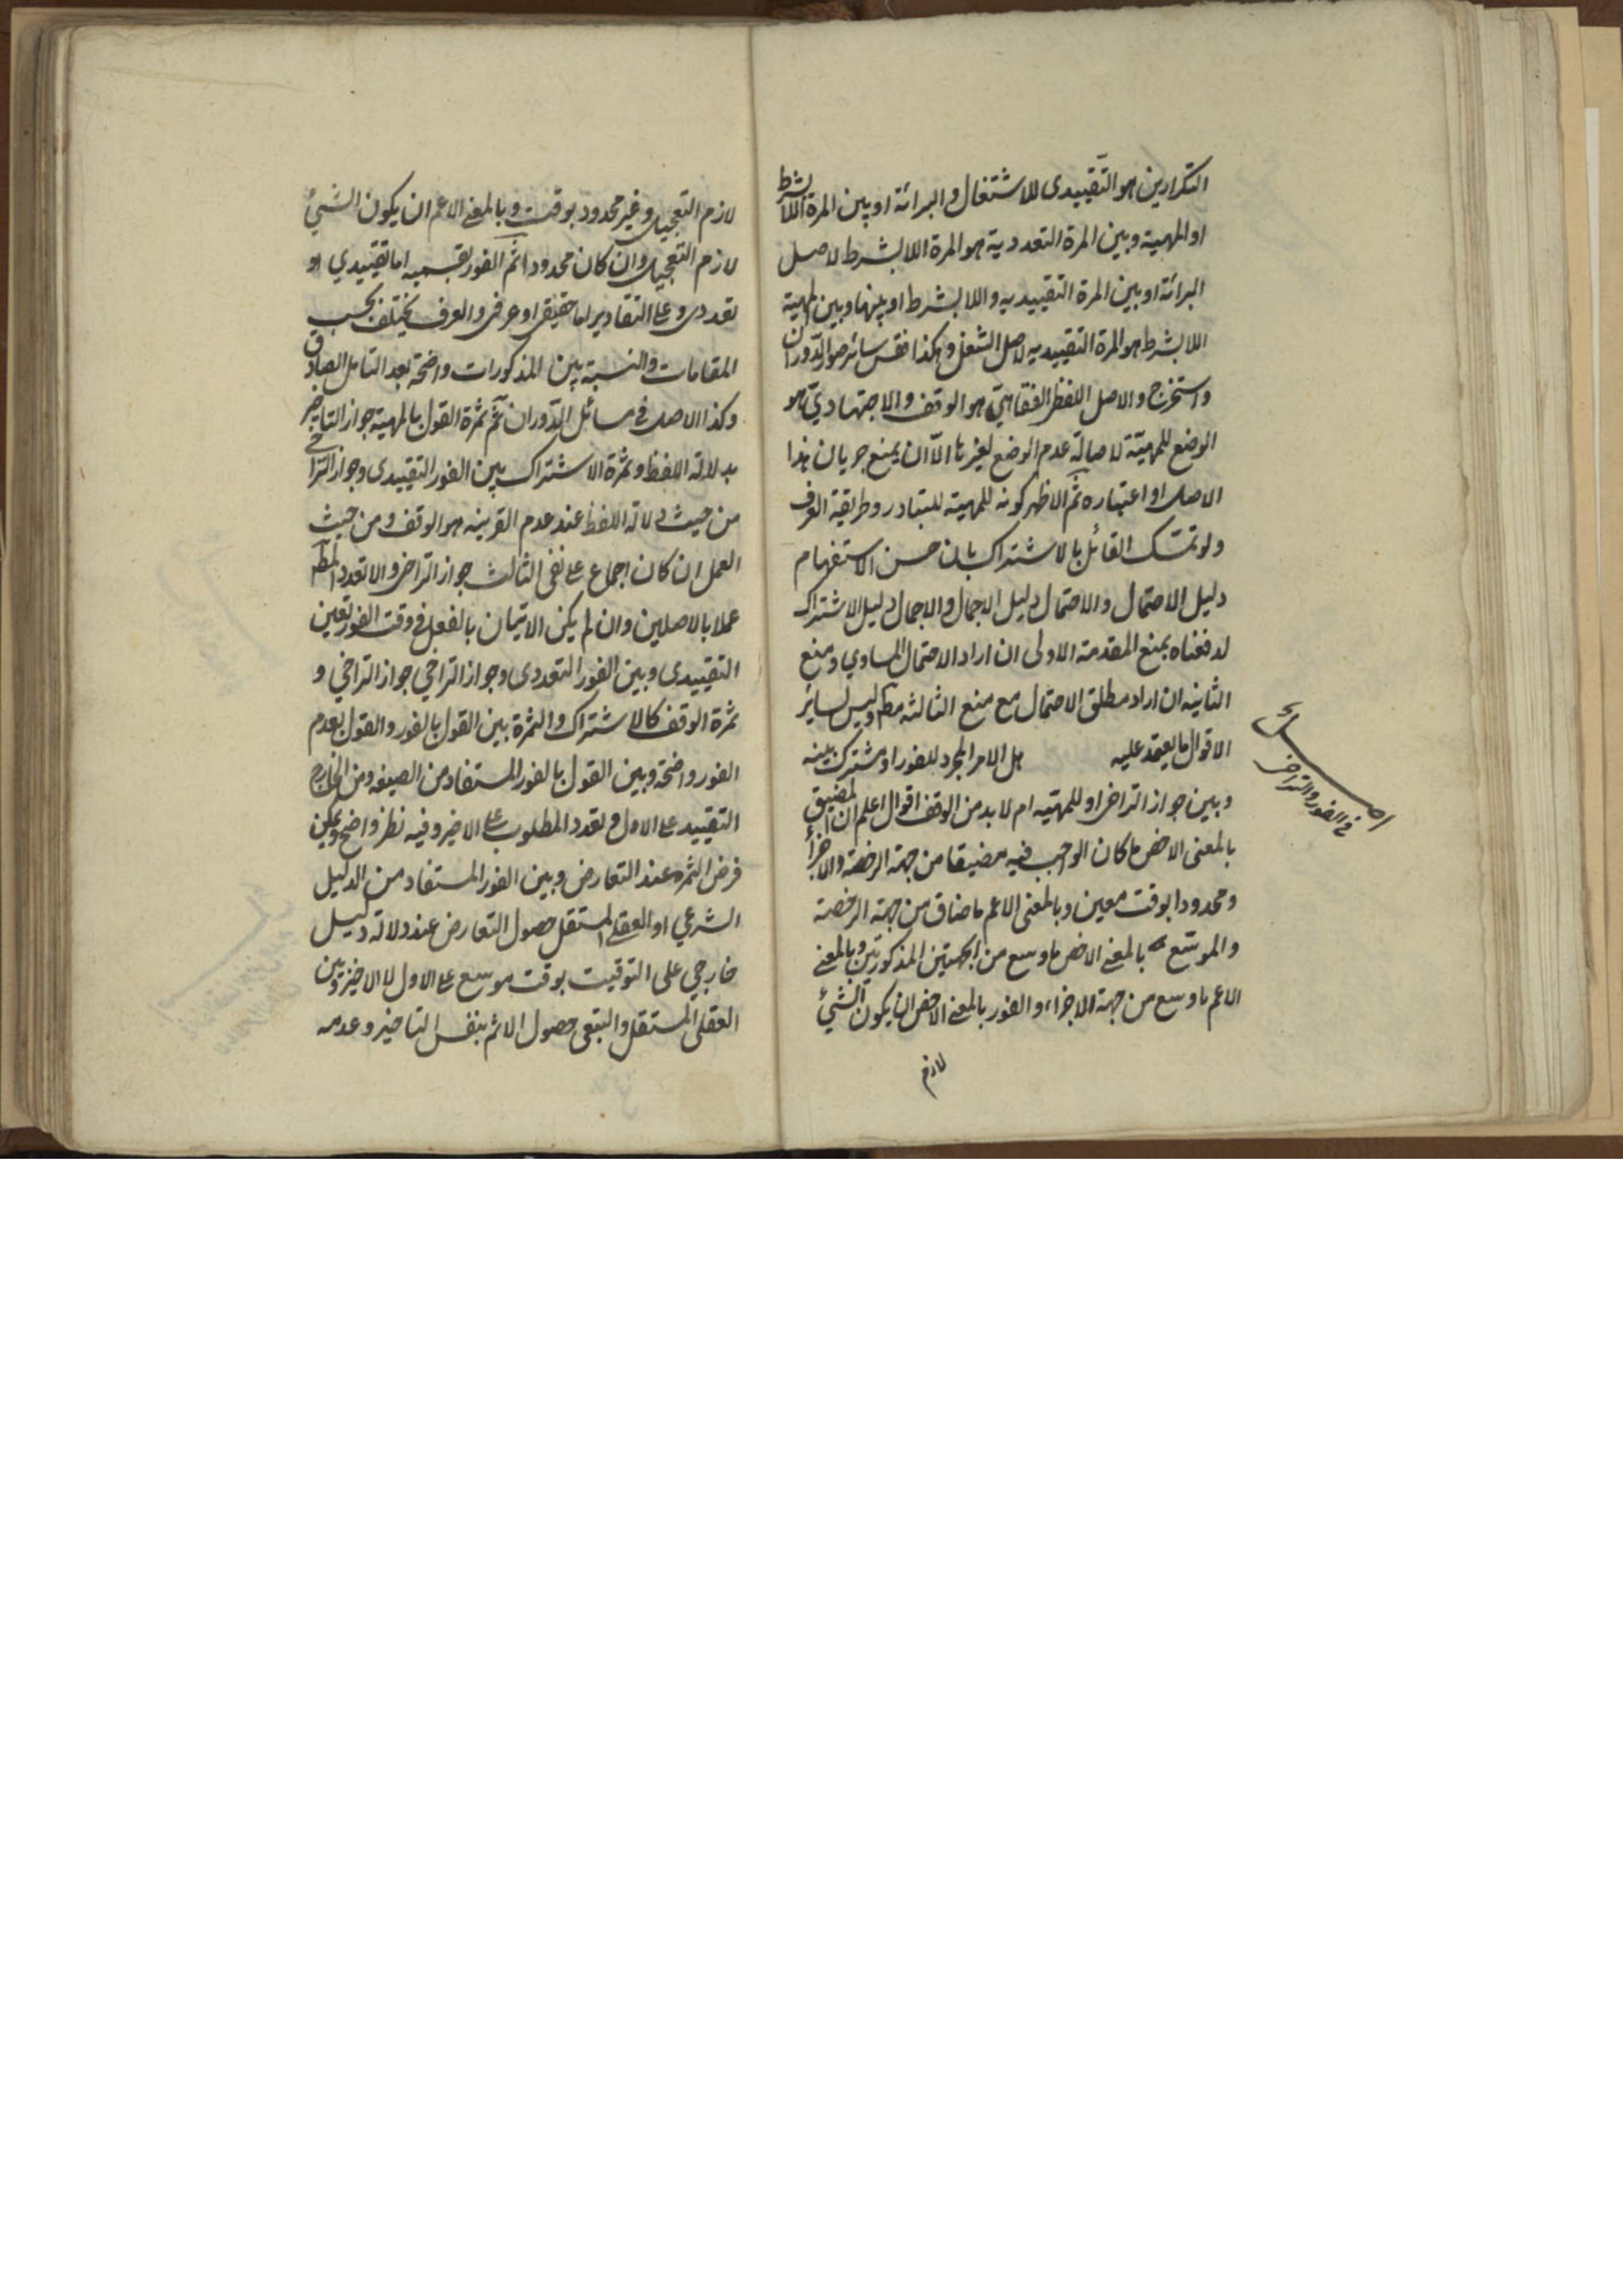 التكرارين هو التقييدى للاشتغال والبرائة او بين المرة اللا بشرط
او المهية وبين المرة التعددية هو المرة اللا بشرط لاصل
البرائة او بين المرة التقييديه واللا بشرط او بينها وبين المهية
اللا بشرط هو المرة التقييديه لاصل الشغل وهكذا فقس سائر صور الدّوران
واستخرج والاصل اللفظى الفقاهتى هو الوقف والاجتهادىّ هو
الوضع للمهيّة لاصالة عدم الوضع لغيرها الّا ان يمنع جريان هذا
الاصل او اعتباره ثم الاظهر كونه للمهية للتبادر وطريقة العرف
ولو تمسّك القائل بالاشتراك بان حسن الاستفهام
دليل الاحتمال والاحتمال دليل الاجمال والاجمال دليل الاشتراك
لدفعناه بمنع المقدمة الاولى ان اراد الاحتمال المساوي ومنع
الثانيه ان اراد مطلق الاحتمال مع منع الثالثه مطلقا وليس لساير
الاقوال ما يعتمد عليه هل الامر المجرد للفور او مشترك بينه
وبين جواز التراخى او للمهيّه ام لا بد من الوقف اقوال اعلم ان المضيق
بالمعنى الاخص ما كان الوجب فيه مضيقا من جهة الرخصة والاجزاء
ومحدودا بوقت معين وبالمعنى الاعم ما ضاق من جهة الرخصة
والموسّع بالمعنى الاخص ما وسع من الجهتين المذكورتين وبالمعنى
الاعم ما وسع من جهة الاجزاء، والفور بالمعنى الاخص ان يكون الشئ
لازم
اصل
فى الفور والتراخى
لازم التعجيل وغير محدود بوقت وبالمعنى الاعم ان يكون الشئ
لازم التعجيل وان كان محدودا ثم الفور بقسميه اما تقييدي او
تعددى وعلى التقادير اما حقيقى او عرفى والعرف يختلف بحسب
المقامات والنسبة بين المذكورات واضحة بعد التامل الصادق
وكذا الاصل فى مسائل الدّوران ثم ثمرة القول بالمهية جواز التاخير
بدلالة اللفظ وثمرة الاشتراك بين الفور التقييدى وجواز التراخى
من حيث دلالة اللفظ عند عدم القرينه هو الوقف ومن حيث
العمل ان كان اجماع على نفى الثالث جواز التراخى والا تعدد المط
عملا بالاصلين وان لم يكن الاتيان بالفعل فى وقت الفور تعين
التقييدى وبين الفور التعددى وجواز التراخي جواز التراخي و
ثمرة الوقف كالاشتراك والثمرة بين القول بالفور والقول بعدم
الفور واضحة وبين القول بالفور المستفاد من الصيغه ومن الخارج
التقييد على الاول وتعدد المطلوب على الاخير وفيه نظر واضح ويمكن
فرض الثمره عند التعارض وبين الفور المستفاد من الدليل
الشرعي او العقلى المستقل حصول التعارض عند دلالة دليل
خارجي على التوقيت بوقت موسع على الاول لا الاخير وبين
العقلى المستقل والتبعى حصول الاثم بنفس التاخير وعدمه